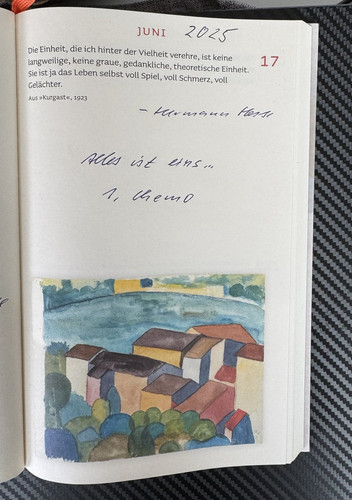 JUNI 2025
Die Einheit, die ich hinter der Vielheit verehre, ist keine
langweilige, keine graue, gedankliche, theoretische Einheit.
Sie ist ja das Leben selbst voll Spiel, voll Schmerz, voll
Gelächter.
17
Aus »Kurgast«, 1923
- Hermann Hesse
Alles ist eins...
1, Chemo